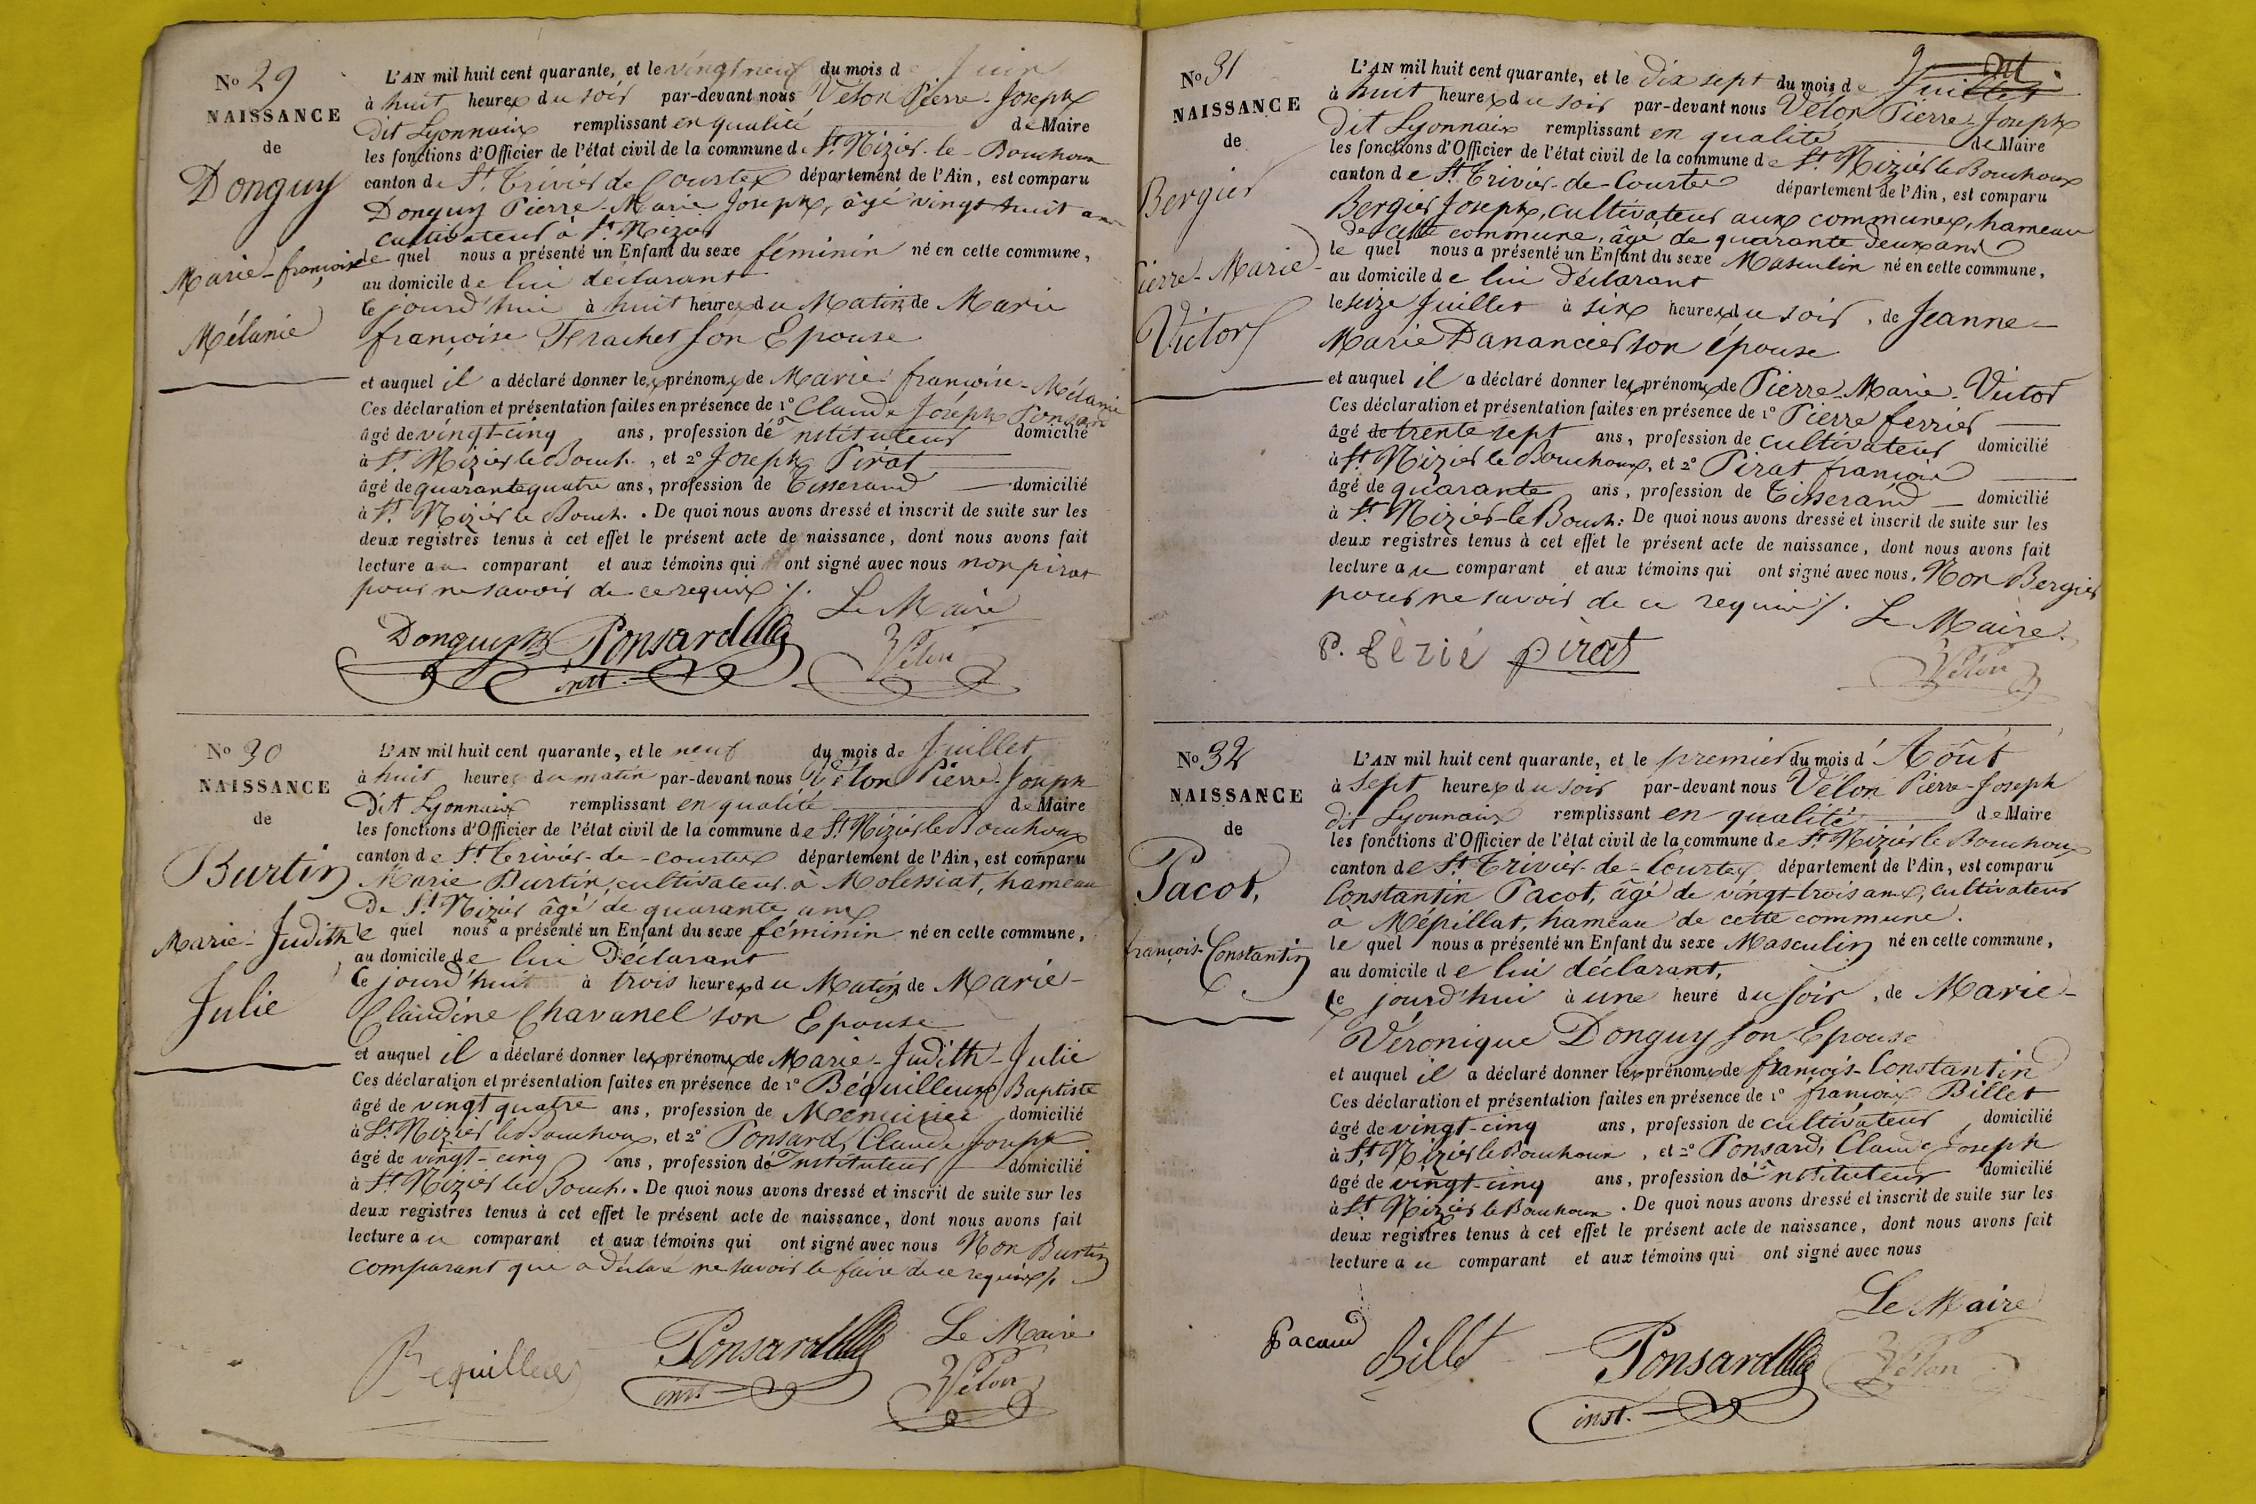 No 29
NAISSANCE
de
Donguy
Marie-françoise
Mélanie
L'AN mil huit cent quarante, et le vingt neuf du mois de Juin
à huit heures du soir par-devant nous Vélon Pierre-Joseph
dit Lyonnais remplissant en qualité de Maire
les fonctions d'Officier de l'état civil de la commune de St. Nizier-le-Bouchoux
canton de St. Trivier de Courtes département de l'Ain, est comparu
Donguy Pierre-Marie Joseph, âgé vingt huit ans
cultivateur à St. Nizier
le quel nous a présenté un Enfant du sexe féminin né en cette commune,
au domicile de lui déclarant
ce jourd'hui à huit heures du Matin de Marie
françoise son Epouse
et auquel il a déclaré donner les prénoms de Marie françoise-Mélanie
Ces déclaration et présentation faites en présence de 1° Claude Joseph Ponsard
âgé de vingt-cinq ans, profession d'instituteur domicilié
à St. Nizier le Bouch. , et 2° Joseph Pirat
âgé de quarante quatre ans, profession de Tisserand domicilié
à St. Nizier le Bouch. . De quoi nous avons dressé et inscrit de suite sur les
deux registres tenus à cet effet le présent acte de naissance, dont nous avons fait
lecture au comparant et aux témoins qui ont signé avec nous non pirat
pour ne savoir de ce requis /. Le Maire
Donguy Ponsard Vélon
inst.
No 30
NAISSANCE
de
Burtin
Marie-Judith
Julie
L'AN mil huit cent quarante, et le neuf du mois de Juillet
à huit heures du matin par-devant nous Vélon Pierre-Joseph
Dit Lyonnais remplissant en qualité de Maire
les fonctions d'Officier de l'état civil de la commune de St. Nizier le Bouchoux
canton de St. trivier-de-courtes département de l'Ain, est comparu
Marie Burtin, cultivateur à Molessiat, hameau
De St. Nizier âgé de quarante ans
le quel nous a présenté un Enfant du sexe féminin né en cette commune,
au domicile de lui Déclarant
ce jourd'hui à trois heures du Matin de Marie-
Claudine Chavanel son Epouse
et auquel il a déclaré donner les prénoms de Marie-Judith-Julie
Ces déclaration et présentation faites en présence de 1° Béquilleux Baptiste
âgé de vingt quatre ans, profession de Menuisier domicilié
à St. Nizier le Bouchoux, et 2° Ponsard Claude Joseph
âgé de vingt-cinq ans, profession d'Instituteur domicilié
à St. Nizier le Bouch. . De quoi nous avons dressé et inscrit de suite sur les
deux registres tenus à cet effet le présent acte de naissance, dont nous avons fait
lecture au comparant et aux témoins qui ont signé avec nous Non Burtin
comparant qui a Déclaré ne savoir le faire de ce requis /.
Le Maire
Béquilleux Ponsard Vélon
inst.
No 31
NAISSANCE
de
Bergier
Pierre-Marie
Victor
L'AN mil huit cent quarante, et le dix sept du mois de Juillet
à huit heures du soir par-devant nous Vélon Pierre-Joseph
dit Lyonnais remplissant en qualité de Maire
les fonctions d'Officier de l'état civil de la commune de St. Nizier le Bouchoux
canton de St. Trivier-de-Courtes département de l'Ain, est comparu
Bergier Joseph, cultivateur aux communes, hameau
de cette commune, âgé de quarante deux ans
le quel nous a présenté un Enfant du sexe Masculin né en cette commune,
au domicile de lui Déclarant
le seize Juillet à six heures du soir, de Jeanne-
Marie Danancier son épouse
et auquel il a déclaré donner les prénoms de Pierre-Marie-Victor
Ces déclaration et présentation faites en présence de 1° Pierre ferrier
âgé de trente sept ans, profession de cultivateur domicilié
à St. Nizier le Bouchoux, et 2° Pirat françois
âgé de quarante ans, profession de Tisserand domicilié
à St. Nizier-le Bouch: De quoi nous avons dressé et inscrit de suite sur les
deux registres tenus à cet effet le présent acte de naissance, dont nous avons fait
lecture au comparant et aux témoins qui ont signé avec nous. Non Bergier
pour ne savoir de ce requis /. Le Maire.
P. férié pirat Vélon
No 32
NAISSANCE
de
Pacot,
françois-Constantin
L'AN mil huit cent quarante, et le premier du mois d'Août
à sept heures du soir par-devant nous Vélon Pierre-Joseph
dit Lyonnais remplissant en qualité de Maire
les fonctions d'Officier de l'état civil de la commune de St. Nizier le Bouchoux
canton de St. Trivier-de-Courtes département de l'Ain, est comparu
Constantin Pacot, âgé de vingt-trois ans, cultivateur
à Mépillat, hameau de cette commune.
le quel nous a présenté un Enfant du sexe Masculin né en cette commune,
au domicile de lui déclarant,
ce jourd'hui à une heure du soir, de Marie-
Véronique Donguy son Epouse
et auquel il a déclaré donner les prénoms de françois-Constantin
Ces déclaration et présentation faites en présence de 1° françois Billet
âgé de vingt-cinq ans, profession de cultivateur domicilié
à St. Nizier le Bouchoux, et 2° Ponsard, Claude Joseph
âgé de vingt-cinq ans, profession d'instituteur domicilié
à St. Nizier le Bouchoux . De quoi nous avons dressé et inscrit de suite sur les
deux registres tenus à cet effet le présent acte de naissance, dont nous avons fait
lecture au comparant et aux témoins qui ont signé avec nous
Le Maire
Billet Ponsard Vélon
inst.